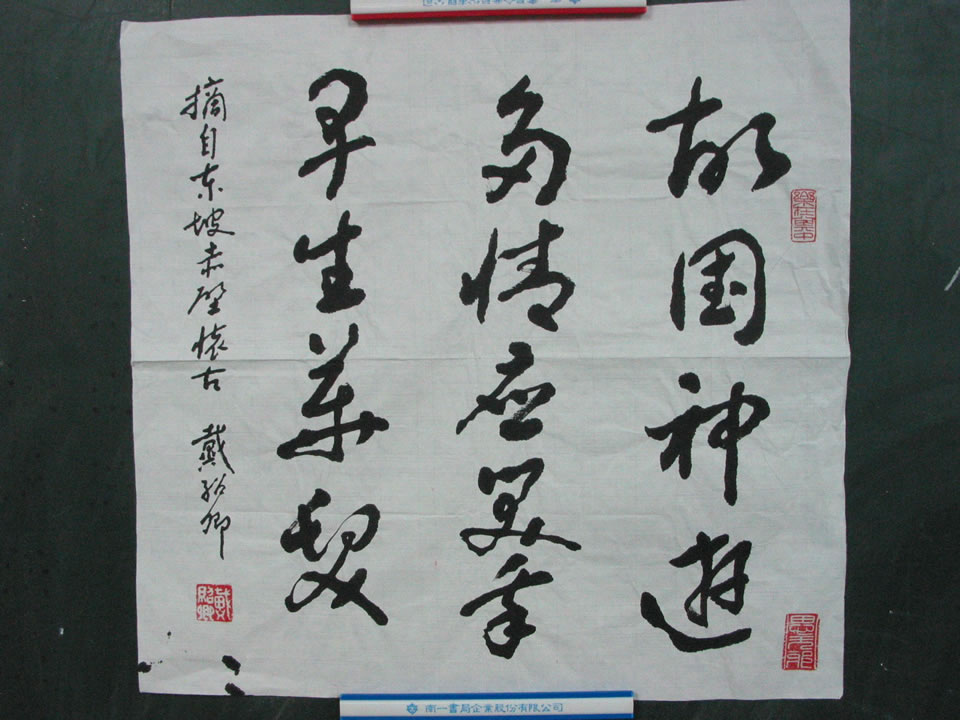 故国神遊
多情应笑我
早生華髮
摘自东坡赤壁懷古 戴 卿
南一書局企業股份有限公司